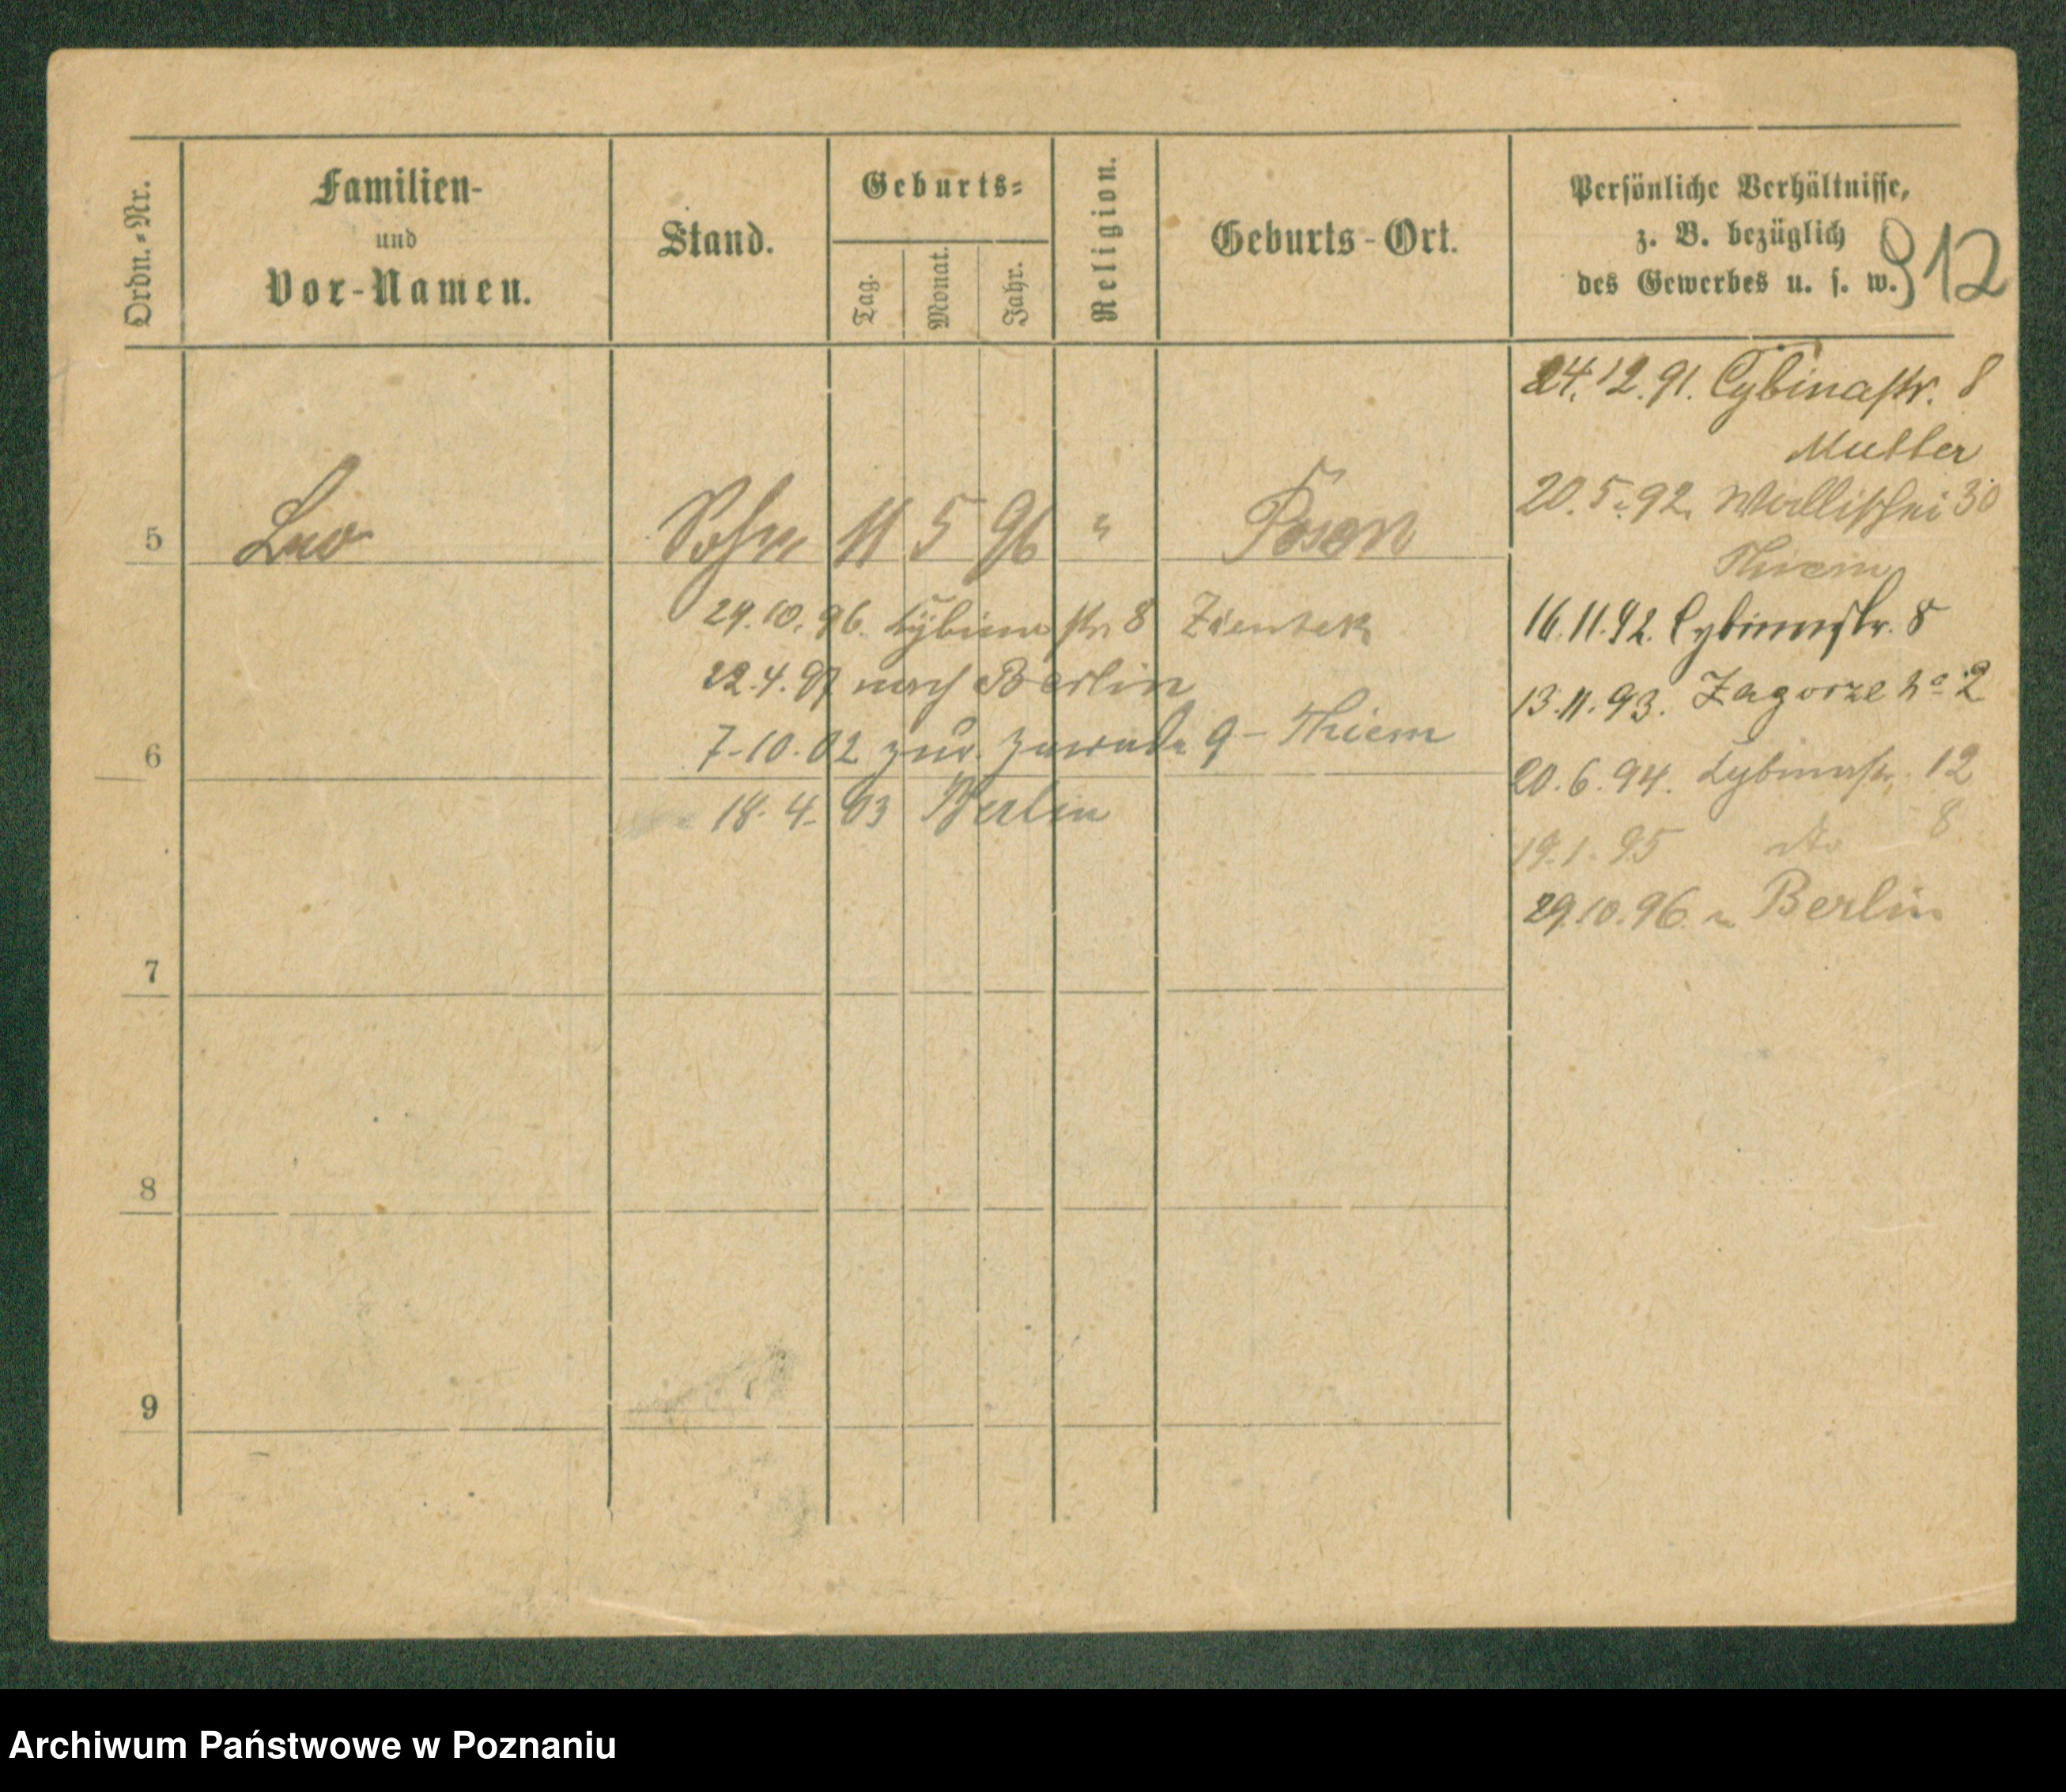 Ordn.-Nr.
Familien-
und
Vor-Namen.
Stand.
Geburts-
Tag.
Monat.
Jahr.
Religion.
Geburts-Ort.
Persönliche Verhältnisse,
z. B. bezüglich
des Gewerbes u. s. w.
912
24.12.91. Cybinastr. 8
Mutter
20.5.92. Wallischei 30
Thiem
16.11.92. Cybinastr. 8
13.11.93. Zagorze No 2
20.6.94. Cybinastr. 12
19.1.95 dto 8
29.10.96. n Berlin
5 Leo Sohn 11 5 96 " Posen
29.10.96. Cybina str 8 Zientek
22.4.97 nach Berlin
7-10-02 zur. Zawade 9 - Thiem
6
18-4-03 Berlin
7
8
9
Archiwum Państwowe w Poznaniu